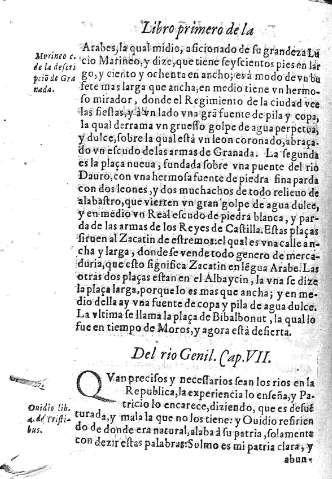 Libro primero de la
Marineo c.
de la descri
pciō de Gra
nada.
Arabes, la qual midio, aficionado de su grandeza Lu
cio Marineo, y dize, que tiene seyscientos pies en lar
go, y ciento y ochenta en ancho; es a modo de vn bu
fete mas larga que ancha, en medio tiene vn hermo-
so mirador, donde el Regimiento de la ciudad vee
las fiestas, y à vn lado vna grā fuente de pila y copa,
la qual derrama vn gruesso golpe de agua perpetua,
y dulce, sobre la qual està vn leon coronado, abraça
do vn escudo de las armas de Granada. La segunda
es la plaça nueua, fundada sobre vna puente del rio
Dauro, con vna hermosa fuente de piedra fina parda
con dos leones, y dos muchachos de todo relieuo de
alabastro, que vierten vn gran golpe de agua dulce,
y en medio vn Real escudo de piedra blanca, y par-
da de las armas de los Reyes de Castilla. Estas plaças
siruen al Zacatin de estremos: el qual es vna calle an-
cha y larga, donde se vende todo genero de merca-
duria, que esto significa Zacatin en lēgua Arabe. Las
otras dos plaças estan en el Albaycin, la vna se dize
la plaça larga, porque lo es mas que ancha; y en me-
dio della ay vna fuente de copa y pila de agua dulce.
La vltima se llama la plaça de Bibalbonut, la qual lo
fue en tiempo de Moros, y agora està desierta.
Del rio Genil. Cap. VII.
Ouidio lib.
4. de Tristi-
bus.
QVan precisos y necessarios sean los rios en la
Republica, la experiencia lo enseña, y Pa
tricio lo encarece, diziendo, que es desuē
turada, y mala la que no los tiene: y Ouidio refirien
do de donde era natural, alaba à su patria, solamente
con dezir estas palabras: Solmo es mi patria clara, y
abun-